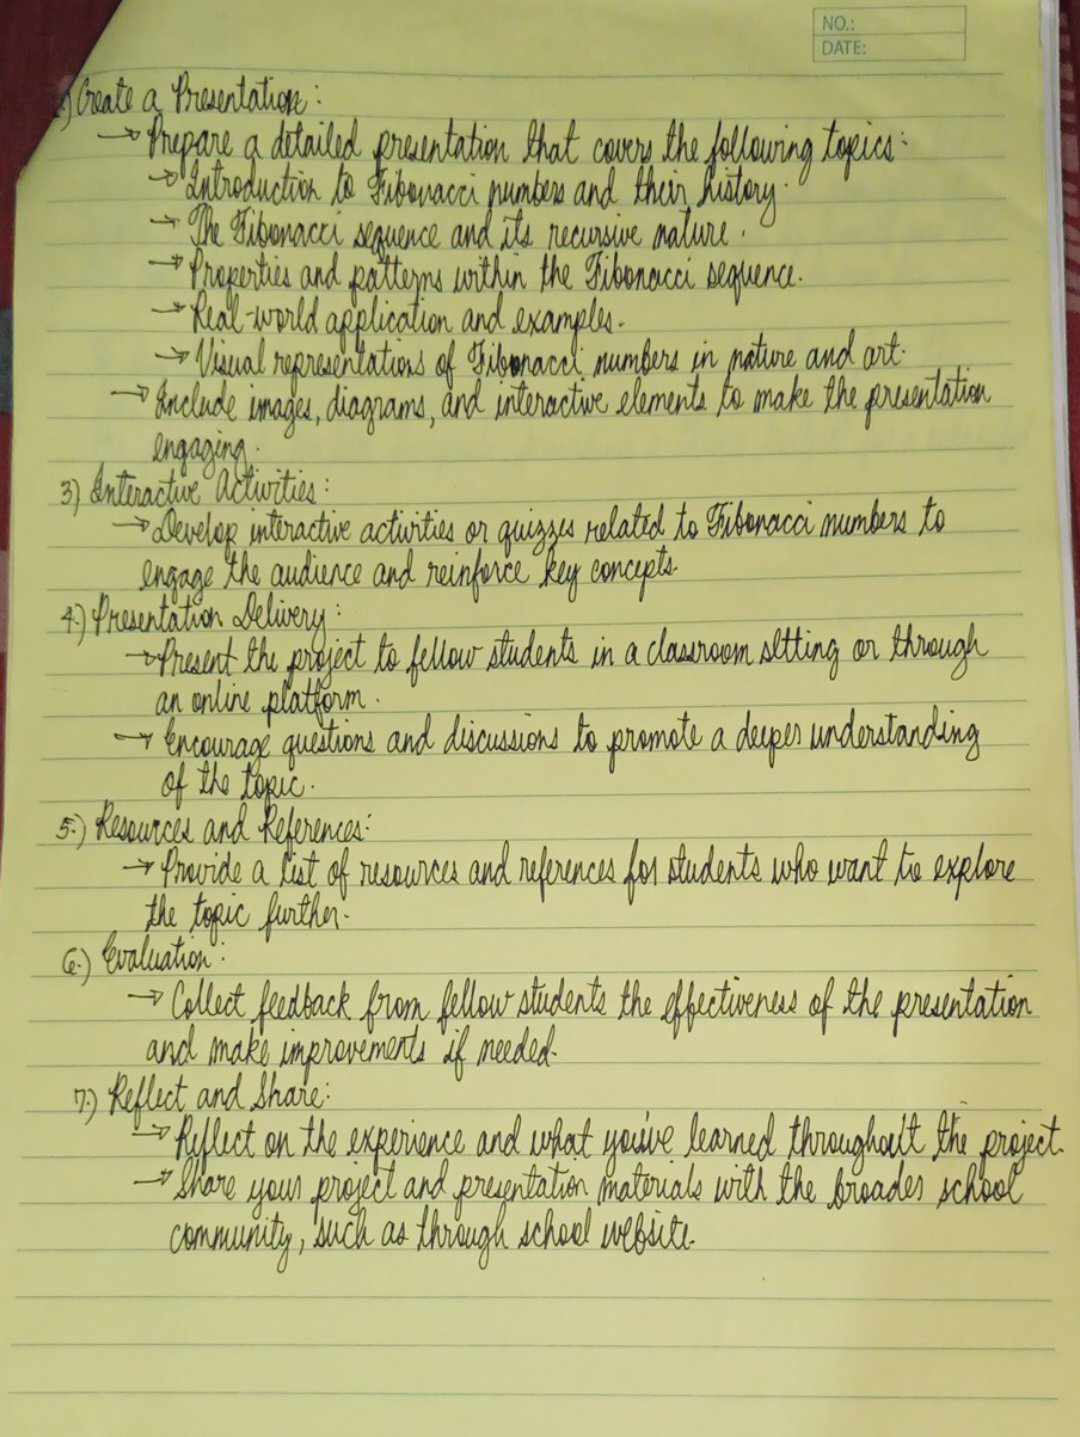 NO.:
DATE:
) Create a Presentation:
→ Prepare a detailed presentation that covers the following topics:
→ Introduction to Fibonacci numbers and their history.
→ The Fibonacci sequence and its recursive nature.
→ Properties and patterns within the Fibonacci sequence.
→ Real-world application and examples.
→ Visual representations of Fibonacci numbers in nature and art.
→ Include images, diagrams, and interactive elements to make the presentation
engaging.
3) Interactive Activities:
→ Develop interactive activities or quizzes related to Fibonacci numbers to
engage the audience and reinforce key concepts.
4.) Presentation Delivery:
→ Present the project to fellow students in a classroom setting or through
an online platform.
→ Encourage questions and discussions to promote a deeper understanding
of the topic.
5.) Resources and References:
→ Provide a list of resources and references for students who want to explore
the topic further.
6.) Evaluation:
→ Collect feedback from fellow students the effectiveness of the presentation
and make improvements if needed.
7.) Reflect and Share:
→ Reflect on the experience and what you've learned throughout the project.
→ Share your project and presentation materials with the broader school
community, such as through school website.